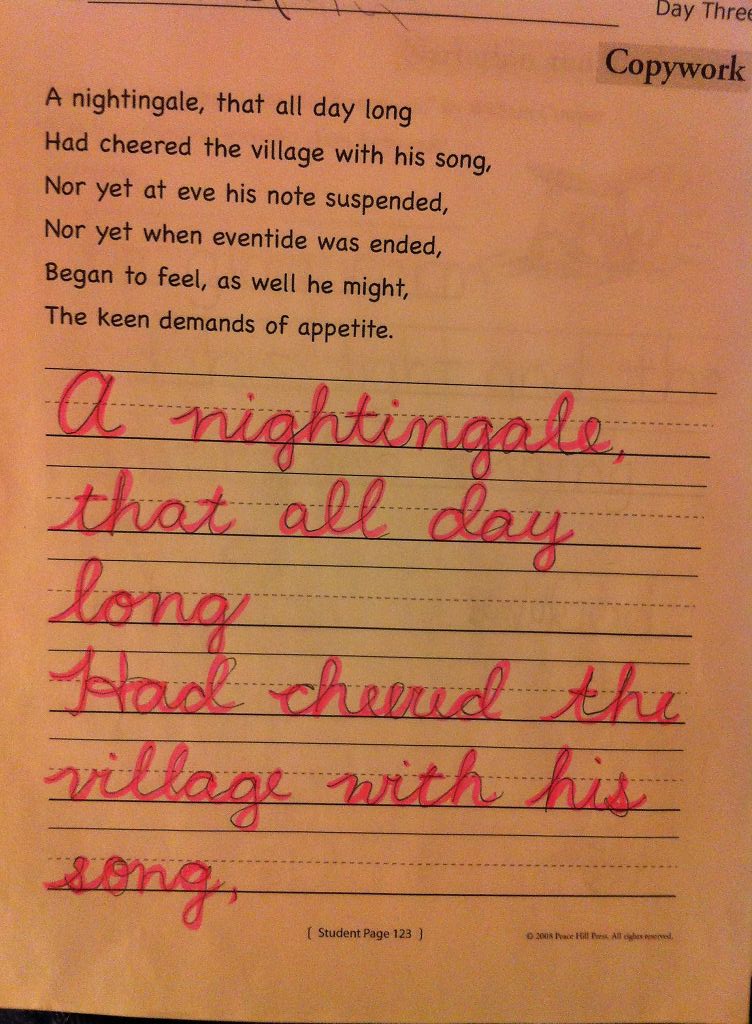 Day Three
Copywork
A nightingale, that all day long
Had cheered the village with his song,
Nor yet at eve his note suspended,
Nor yet when eventide was ended,
Began to feel, as well he might,
The keen demands of appetite.
A nightingale,
that all day
long
Had cheered the
village with his
song,
[ Student Page 123 ]
© 2008 Peace Hill Press. All rights reserved.